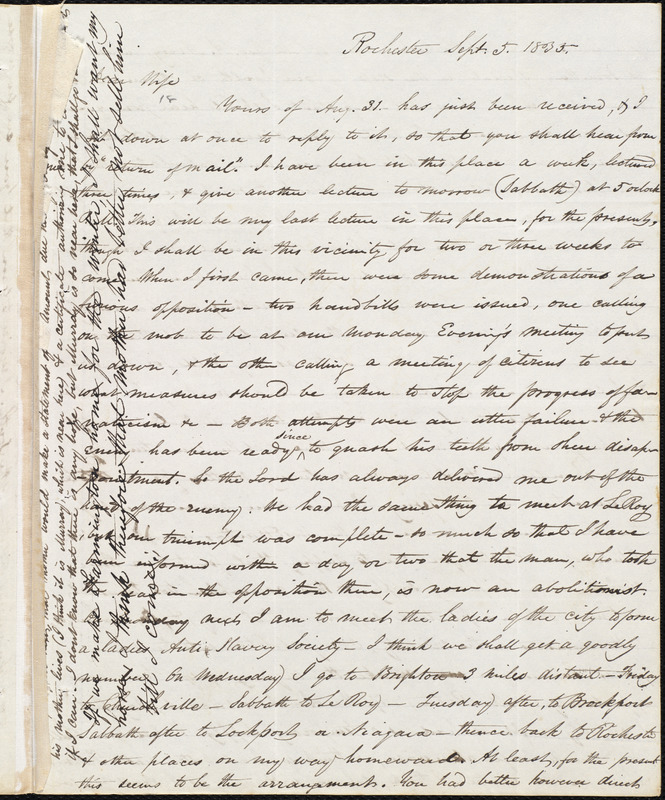 Rochester Sept. 5. 1835.
Wife
Yours of Aug. 31. has just been received, & I
down at once to reply to it, so that you shall hear from
"return of mail". I have been in this place a week, lectured
three times, & give another lecture to morrow (Sabbath) at 5 oclock
This will be my last lecture in this place, for the present,
though I shall be in this vicinity for two or three weeks to
come. When I first came, there were some demonstrations of a
opposition - two handbills were issued, one calling
on the mob to be at our Monday Evening's meeting to put
us down, & the other calling a meeting of citizens to see
what measures should be taken to stop the progress of fa-
naticism &c - Both attempts were an utter failure & the
enemy has been ready since to gnash his teeth from sheer disap-
pointment. So the Lord has always delivered me out of the
of the enemy. We had the same thing to meet at LeRoy
our triumph was complete - so much so that I have
been informed with a day or two that the man, who took
in the opposition there, is now an abolitionist.
next I am to meet the ladies of the city to form
a Ladies Anti Slavery Society - I think we shall get a goodly
number. On Wednesday I go to Brighton 3 miles distant - Friday
to ville - Sabbath to Le Roy - Tuesday after, to Brockport
Sabbath after to Lockport or Niagara - thence back to Rochester
& other places on my way homeward. At least, for the present
this seems to be the arrangement. You had better however direct
home would make a statement of amount, due
his mother lives (I think it is Murray which is near here) & a certificate authorizing me to
if I can. I don't know that there is any hope, but Murray is so near here that I shall go
If we make Farmington home for the winter, we shall want my
horse. I think therefore that mother had better not sell him
till I come.